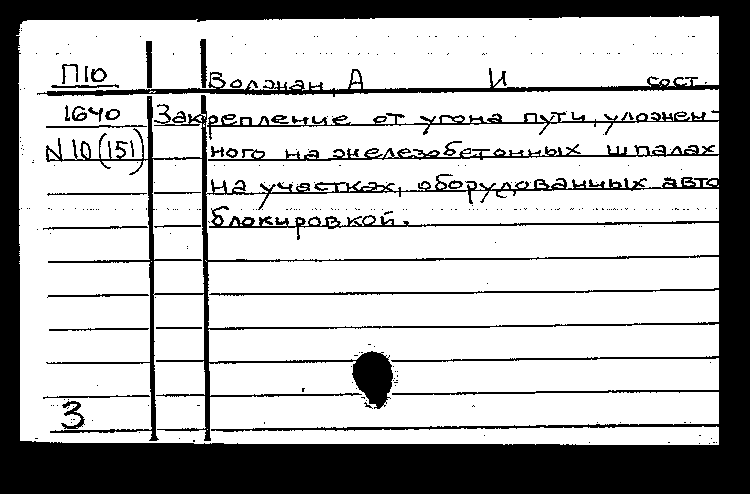 П10
Волжан, А И сост.
1640 Закрепление от угона пути, уложен-
N 10 (151) ного на железобетонных шпалах
на участках, оборудованных авто
блокировкой.
3